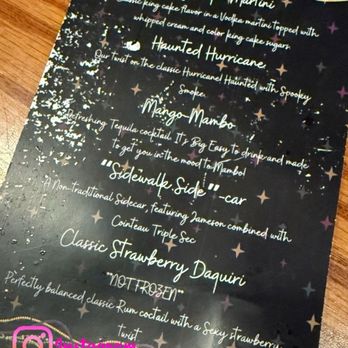 Martini
classic king cake flavor in a Vodka martini topped with
whipped cream and color king cake sugars
Haunted Hurricane
Our Twist on the classic Hurricane! Haunted with Spooky
Smoke
Mango-Mambo
Refreshing Tequila cocktail, It's Big Easy to drink and made
To get you in the mood to Mambo!
""Sidewalk Side ""-car
A Non-traditional Sidecar, featuring Jameson combined with
Cointeau Triple Sec
Classic Strawberry Daquiri
"NOT FROZEN"
Perfectly balanced classic Rum coctail with a Sexy strawberry
twist